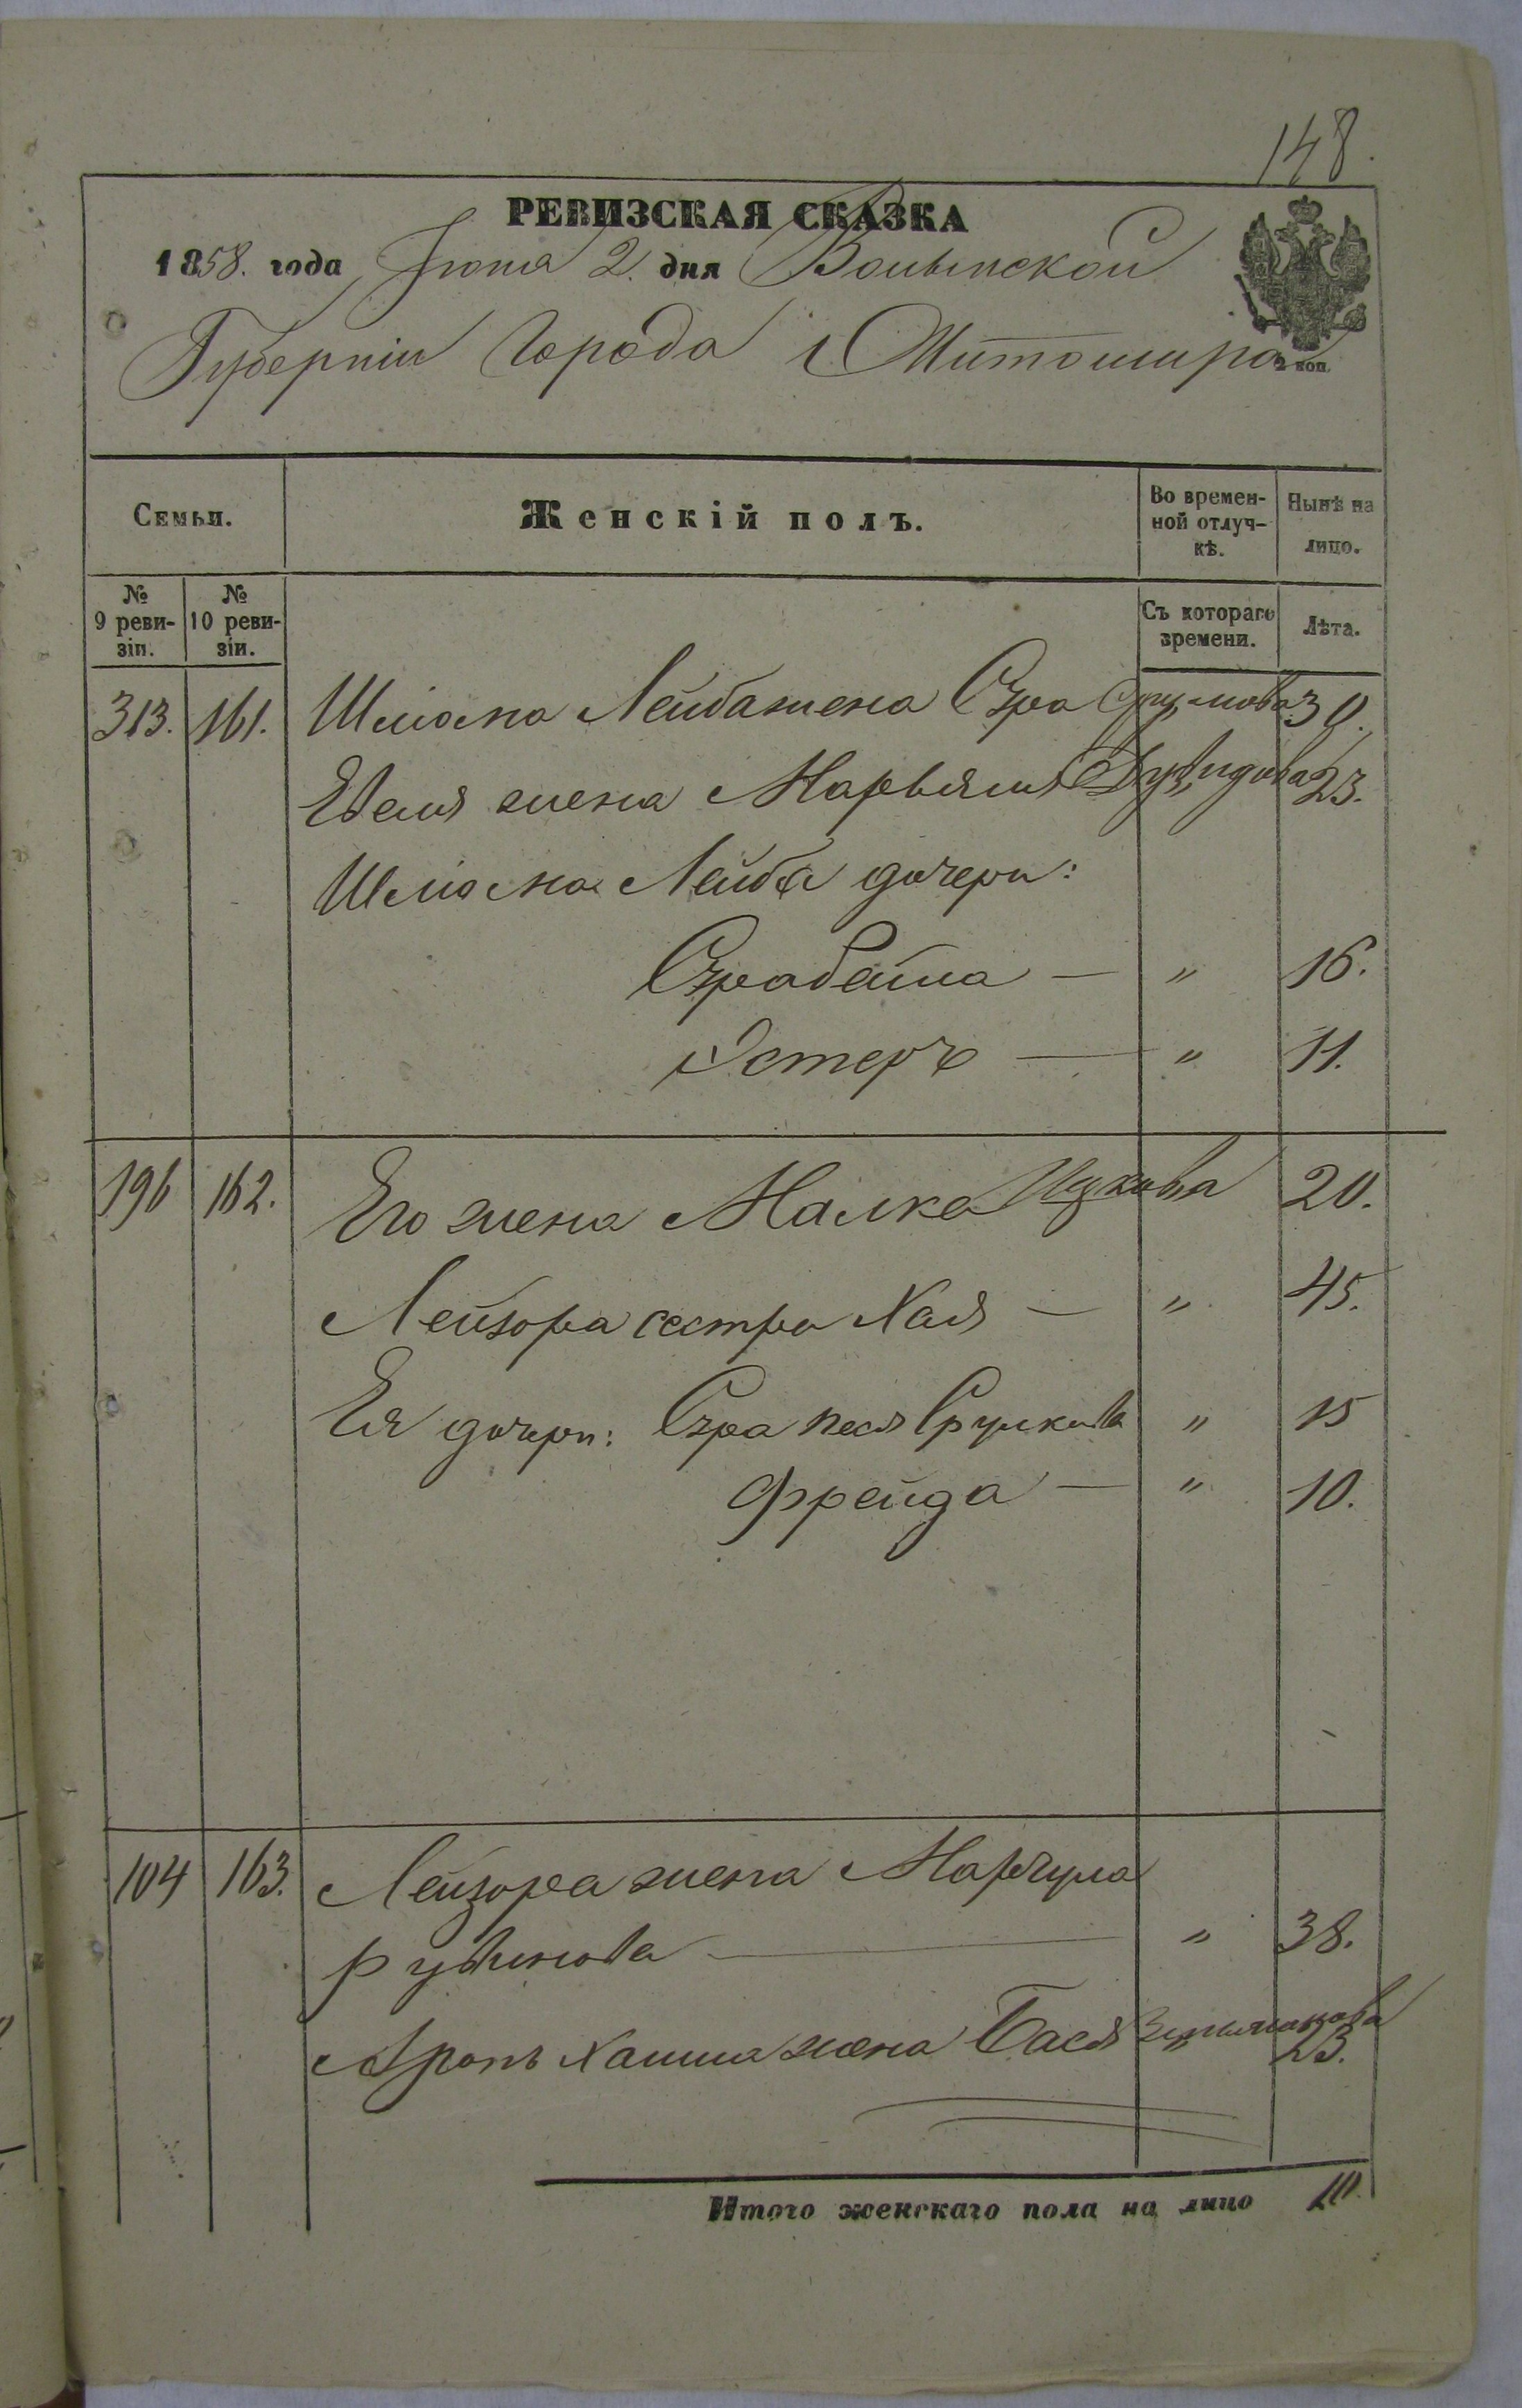 148.
РЕВИЗСКАЯ СКАЗКА
1858. года Іюня 2. дня Волынской
Губерніи Города Житомира
2 коп.
Семьи.
Женскій полъ.
Во времен-
ной отлуч-
кѣ.
Нынѣ на
лицо.
№
9 реви-
зіи.
№
10 реви-
зіи.
Съ котораго
времени.
Лѣта.
313. 161. Шліома Лейба жена Сура 30.
жена Марьямъ Давидова 23.
Шліома Лейба дочери:
Сурабейла — " 16.
Эстеръ — " 11.
196 162. Его жена Малка Ицкова 20.
Лейзора сестра Хая — " 45.
Ея дочери: Сура Песя Срулкова " 15
Фрейда — " 10.
104 163. Лейзора жена Маргула
Рувинова — " 38.
Аронъ Хаима жена Бася " 23.
Итого женскаго пола на лицо 10.